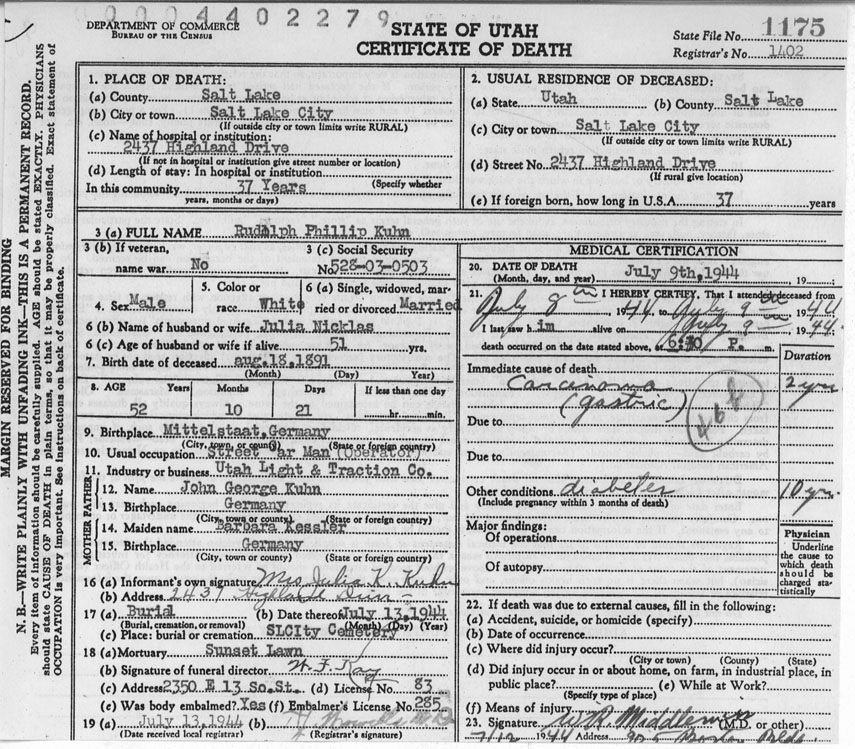 0004402279
DEPARTMENT OF COMMERCE
BUREAU OF THE CENSUS
STATE OF UTAH
CERTIFICATE OF DEATH
State File No. 1175
Registrar's No. 1402
MARGIN RESERVED FOR BINDING
N. B.—WRITE PLAINLY WITH UNFADING INK—THIS IS A PERMANENT RECORD.
Every item of information should be carefully supplied. AGE should be stated EXACTLY. PHYSICIANS
should state CAUSE OF DEATH in plain terms, so that it may be properly classified. Exact statement of
OCCUPATION is very important. See instructions on back of certificate.
1. PLACE OF DEATH:
(a) County Salt Lake
(b) City or town Salt Lake City
(If outside city or town limits write RURAL)
(c) Name of hospital or institution:
2437 Highland Drive
(If not in hospital or institution give street number or location)
(d) Length of stay: In hospital or institution
(Specify whether
In this community 37 Years
years, months or days)
2. USUAL RESIDENCE OF DECEASED:
(a) State Utah (b) County Salt Lake
(c) City or town Salt Lake City
(If outside city or town limits write RURAL)
(d) Street No. 2437 Highland Drive
(If rural give location)
(e) If foreign born, how long in U.S.A 37 years
3 (a) FULL NAME Rudolph Phillip Kuhn
3 (b) If veteran,
name war No
3 (c) Social Security
No. 528-03-0503
4. Sex Male
5. Color or
race White
6 (a) Single, widowed, mar-
ried or divorced Married
6 (b) Name of husband or wife Julia Nicklas
6 (c) Age of husband or wife if alive 51 yrs.
7. Birth date of deceased aug.18,1891
(Month) (Day) Year)
8. AGE Years Months Days If less than one day
52 10 21 hr. min.
9. Birthplace Mittelstaat,Germany
(City, town, or county) (State or foreign country)
10. Usual occupation Street ar Man (Operator)
11. Industry or business Utah Light & Traction Co.
FATHER
12. Name John George Kuhn
13. Birthplace Germany
(City, town or county) (State or foreign country)
MOTHER
14. Maiden name Barbara Kessler
15. Birthplace Germany
(City, town or county) (State or foreign country)
16 (a) Informant's own signature Mrs Julia K. Kuhn
(b) Address 2437
17 (a) Burial (b) Date thereof July 13,1944
(Burial, cremation, or removal) (Month) (Day) (Year)
(c) Place: burial or cremation SLCity Cemetery
18 (a) Mortuary Sunset Lawn
(b) Signature of funeral director
(c) Address 2350 E 13 So.St. (d) License No. 83
(e) Was body embalmed? Yes (f) Embalmer's License No. 285
19 (a) July 13,1944 (b)
(Date received local registrar) (Registrar's signature)
MEDICAL CERTIFICATION
20. DATE OF DEATH July 9th,1944
(Month, day, and year) 19
21. I HEREBY CERTIFY, That I attended deceased from
July 8 th, 1944 to July 9 th 1944
I last saw him alive on July 9 th 1944
death occurred on the date stated above, at 6:10 P. m.
Duration
Immediate cause of death
Carcinoma 2 yrs
(gastric)
Due to
Due to
Other conditions diabetes 10 yrs
(Include pregnancy within 3 months of death)
Major findings:
Of operations
Of autopsy
Physician
Underline
the cause to
which death
should be
charged sta-
tistically
22. If death was due to external causes, fill in the following:
(a) Accident, suicide, or homicide (specify)
(b) Date of occurrence
(c) Where did injury occur?
(City or town) (County) (State)
(d) Did injury occur in or about home, on farm, in industrial place, in
public place? (e) While at Work?
(Specify type of place)
(f) Means of injury
23. Signature (M.D. or other)
7/12 1944 Address